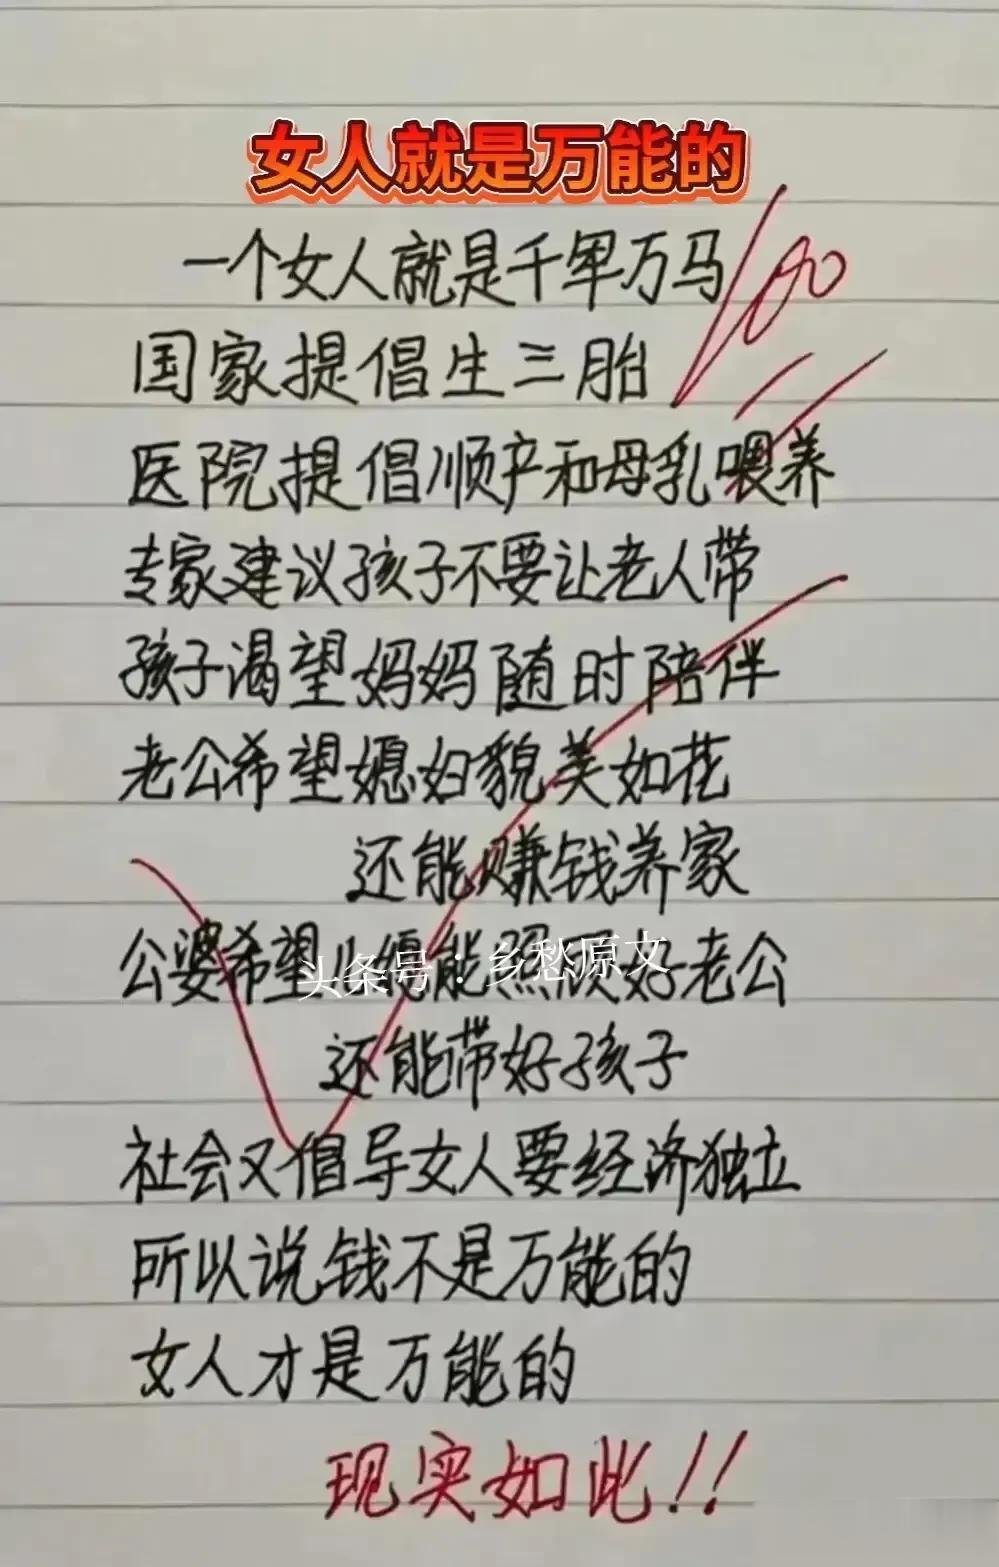 女人就是万能的
一个女人就是千军万马
100
国家提倡生三胎
医院提倡顺产和母乳喂养
专家建议孩子不要让老人带
孩子渴望妈妈随时陪伴
老公希望媳妇貌美如花
还能赚钱养家
公婆希望儿媳能照顾好老公
头条号：乡愁原文
还能带好孩子
社会又倡导女人要经济独立
所以说钱不是万能的
女人才是万能的
现实如此!!